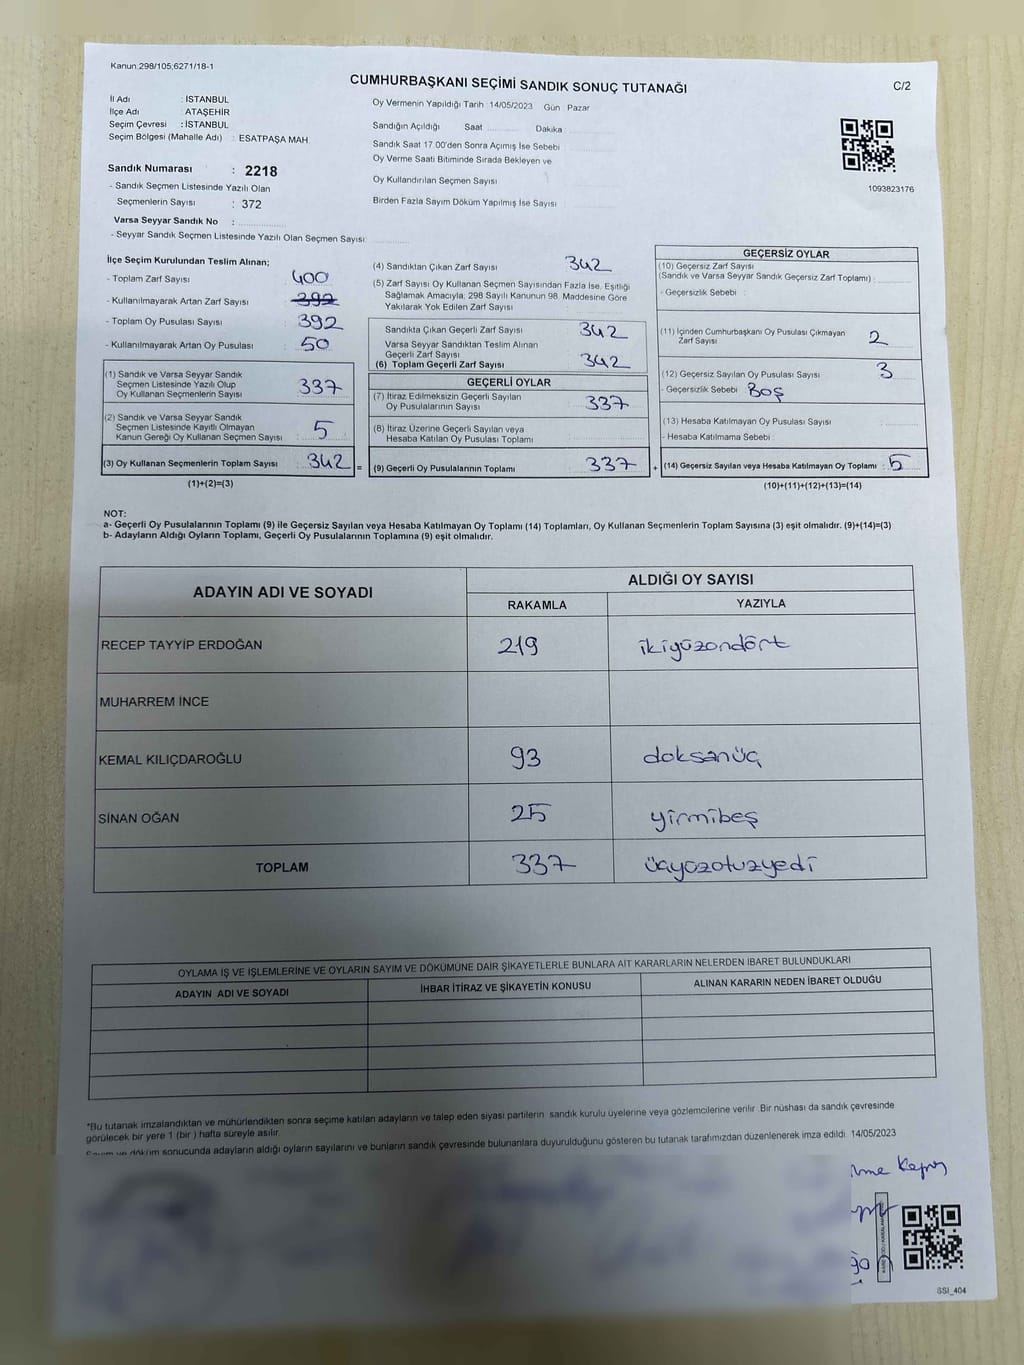 Kanun:298/105,6271/18-1
CUMHURBAŞKANI SEÇİMİ SANDIK SONUÇ TUTANAĞI
C/2
İl Adı : İSTANBUL
İlçe Adı : ATAŞEHİR
Seçim Çevresi : İSTANBUL
Seçim Bölgesi (Mahalle Adı) : ESATPAŞA MAH.
Sandık Numarası : 2218
- Sandık Seçmen Listesinde Yazılı Olan
Seçmenlerin Sayısı : 372
Varsa Seyyar Sandık No :
- Seyyar Sandık Seçmen Listesinde Yazılı Olan Seçmen Sayısı:
Oy Vermenin Yapıldığı Tarih :14/05/2023 Gün : Pazar
Sandığın Açıldığı Saat Dakika :
Sandık Saat 17.00'den Sonra Açımış İse Sebebi
Oy Verme Saati Bitiminde Sırada Bekleyen ve
Oy Kullandırılan Seçmen Sayısı
Birden Fazla Sayım Döküm Yapılmış İse Sayısı
1093823176
İlçe Seçim Kurulundan Teslim Alınan;
- Toplam Zarf Sayısı : 400
- Kullanılmayarak Artan Zarf Sayısı : 392
- Toplam Oy Pusulası Sayısı : 392
- Kullanılmayarak Artan Oy Pusulası : 50
(1) Sandık ve Varsa Seyyar Sandık
Seçmen Listesinde Yazılı Olup
Oy Kullanan Seçmenlerin Sayısı : 337
(2) Sandık ve Varsa Seyyar Sandık
Seçmen Listesinde Kayıtlı Olmayan
Kanun Gereği Oy Kullanan Seçmen Sayısı : 5
(3) Oy Kullanan Seçmenlerin Toplam Sayısı : 342 =
(1)+(2)=(3)
(4) Sandıktan Çıkan Zarf Sayısı : 342
(5) Zarf Sayısı Oy Kullanan Seçmen Sayısından Fazla İse, Eşitliği
Sağlamak Amacıyla, 298 Sayılı Kanunun 98. Maddesine Göre
Yakılarak Yok Edilen Zarf Sayısı :
Sandıkta Çıkan Geçerli Zarf Sayısı : 342
Varsa Seyyar Sandıktan Teslim Alınan
Geçerli Zarf Sayısı
(6) Toplam Geçerli Zarf Sayısı : 342
GEÇERLİ OYLAR
(7) İtiraz Edilmeksizin Geçerli Sayılan
Oy Pusulalarının Sayısı : 337
(8) İtiraz Üzerine Geçerli Sayılan veya
Hesaba Katılan Oy Pusulası Toplamı :
(9) Geçerli Oy Pusulalarının Toplamı : 337 +
GEÇERSİZ OYLAR
(10) Geçersiz Zarf Sayısı
(Sandık ve Varsa Seyyar Sandık Geçersiz Zarf Toplamı) :
- Geçersizlik Sebebi :
(11) İçinden Cumhurbaşkanı Oy Pusulası Çıkmayan
Zarf Sayısı : 2
(12) Geçersiz Sayılan Oy Pusulası Sayısı : 3
- Geçersizlik Sebebi : Boş
(13) Hesaba Katılmayan Oy Pusulası Sayısı :
- Hesaba Katılmama Sebebi :
(14) Geçersiz Sayılan veya Hesaba Katılmayan Oy Toplamı : 5
(10)+(11)+(12)+(13)=(14)
NOT:
a- Geçerli Oy Pusulalarının Toplamı (9) ile Geçersiz Sayılan veya Hesaba Katılmayan Oy Toplamı (14) Toplamları, Oy Kullanan Seçmenlerin Toplam Sayısına (3) eşit olmalıdır. (9)+(14)=(3)
b- Adayların Aldığı Oyların Toplamı, Geçerli Oy Pusulalarının Toplamına (9) eşit olmalıdır.
ADAYIN ADI VE SOYADI
ALDIĞI OY SAYISI
RAKAMLA YAZIYLA
RECEP TAYYİP ERDOĞAN 219 ikiyüzondört
MUHARREM İNCE
KEMAL KILIÇDAROĞLU 93 doksanüç
SİNAN OĞAN 25 yirmibeş
TOPLAM 337 üçyüzotuzyedi
OYLAMA İŞ VE İŞLEMLERİNE VE OYLARIN SAYIM VE DÖKÜMÜNE DAİR ŞİKAYETLERLE BUNLARA AİT KARARLARIN NELERDEN İBARET BULUNDUKLARI
ADAYIN ADI VE SOYADI İHBAR İTİRAZ VE ŞİKAYETİN KONUSU ALINAN KARARIN NEDEN İBARET OLDUĞU
*Bu tutanak imzalandıktan ve mühürlendikten sonra seçime katılan adayların ve talep eden siyasi partilerin sandık kurulu üyelerine veya gözlemcilerine verilir. Bir nüshası da sandık çevresinde
görülecek bir yere 1 (bir ) hafta süreyle asılır.
Sayım ve döküm sonucunda adayların aldığı oyların sayılarını ve bunların sandık çevresinde bulunanlara duyurulduğunu gösteren bu tutanak tarafımızdan düzenlenerek imza edildi. 14/05/2023
SSI_404